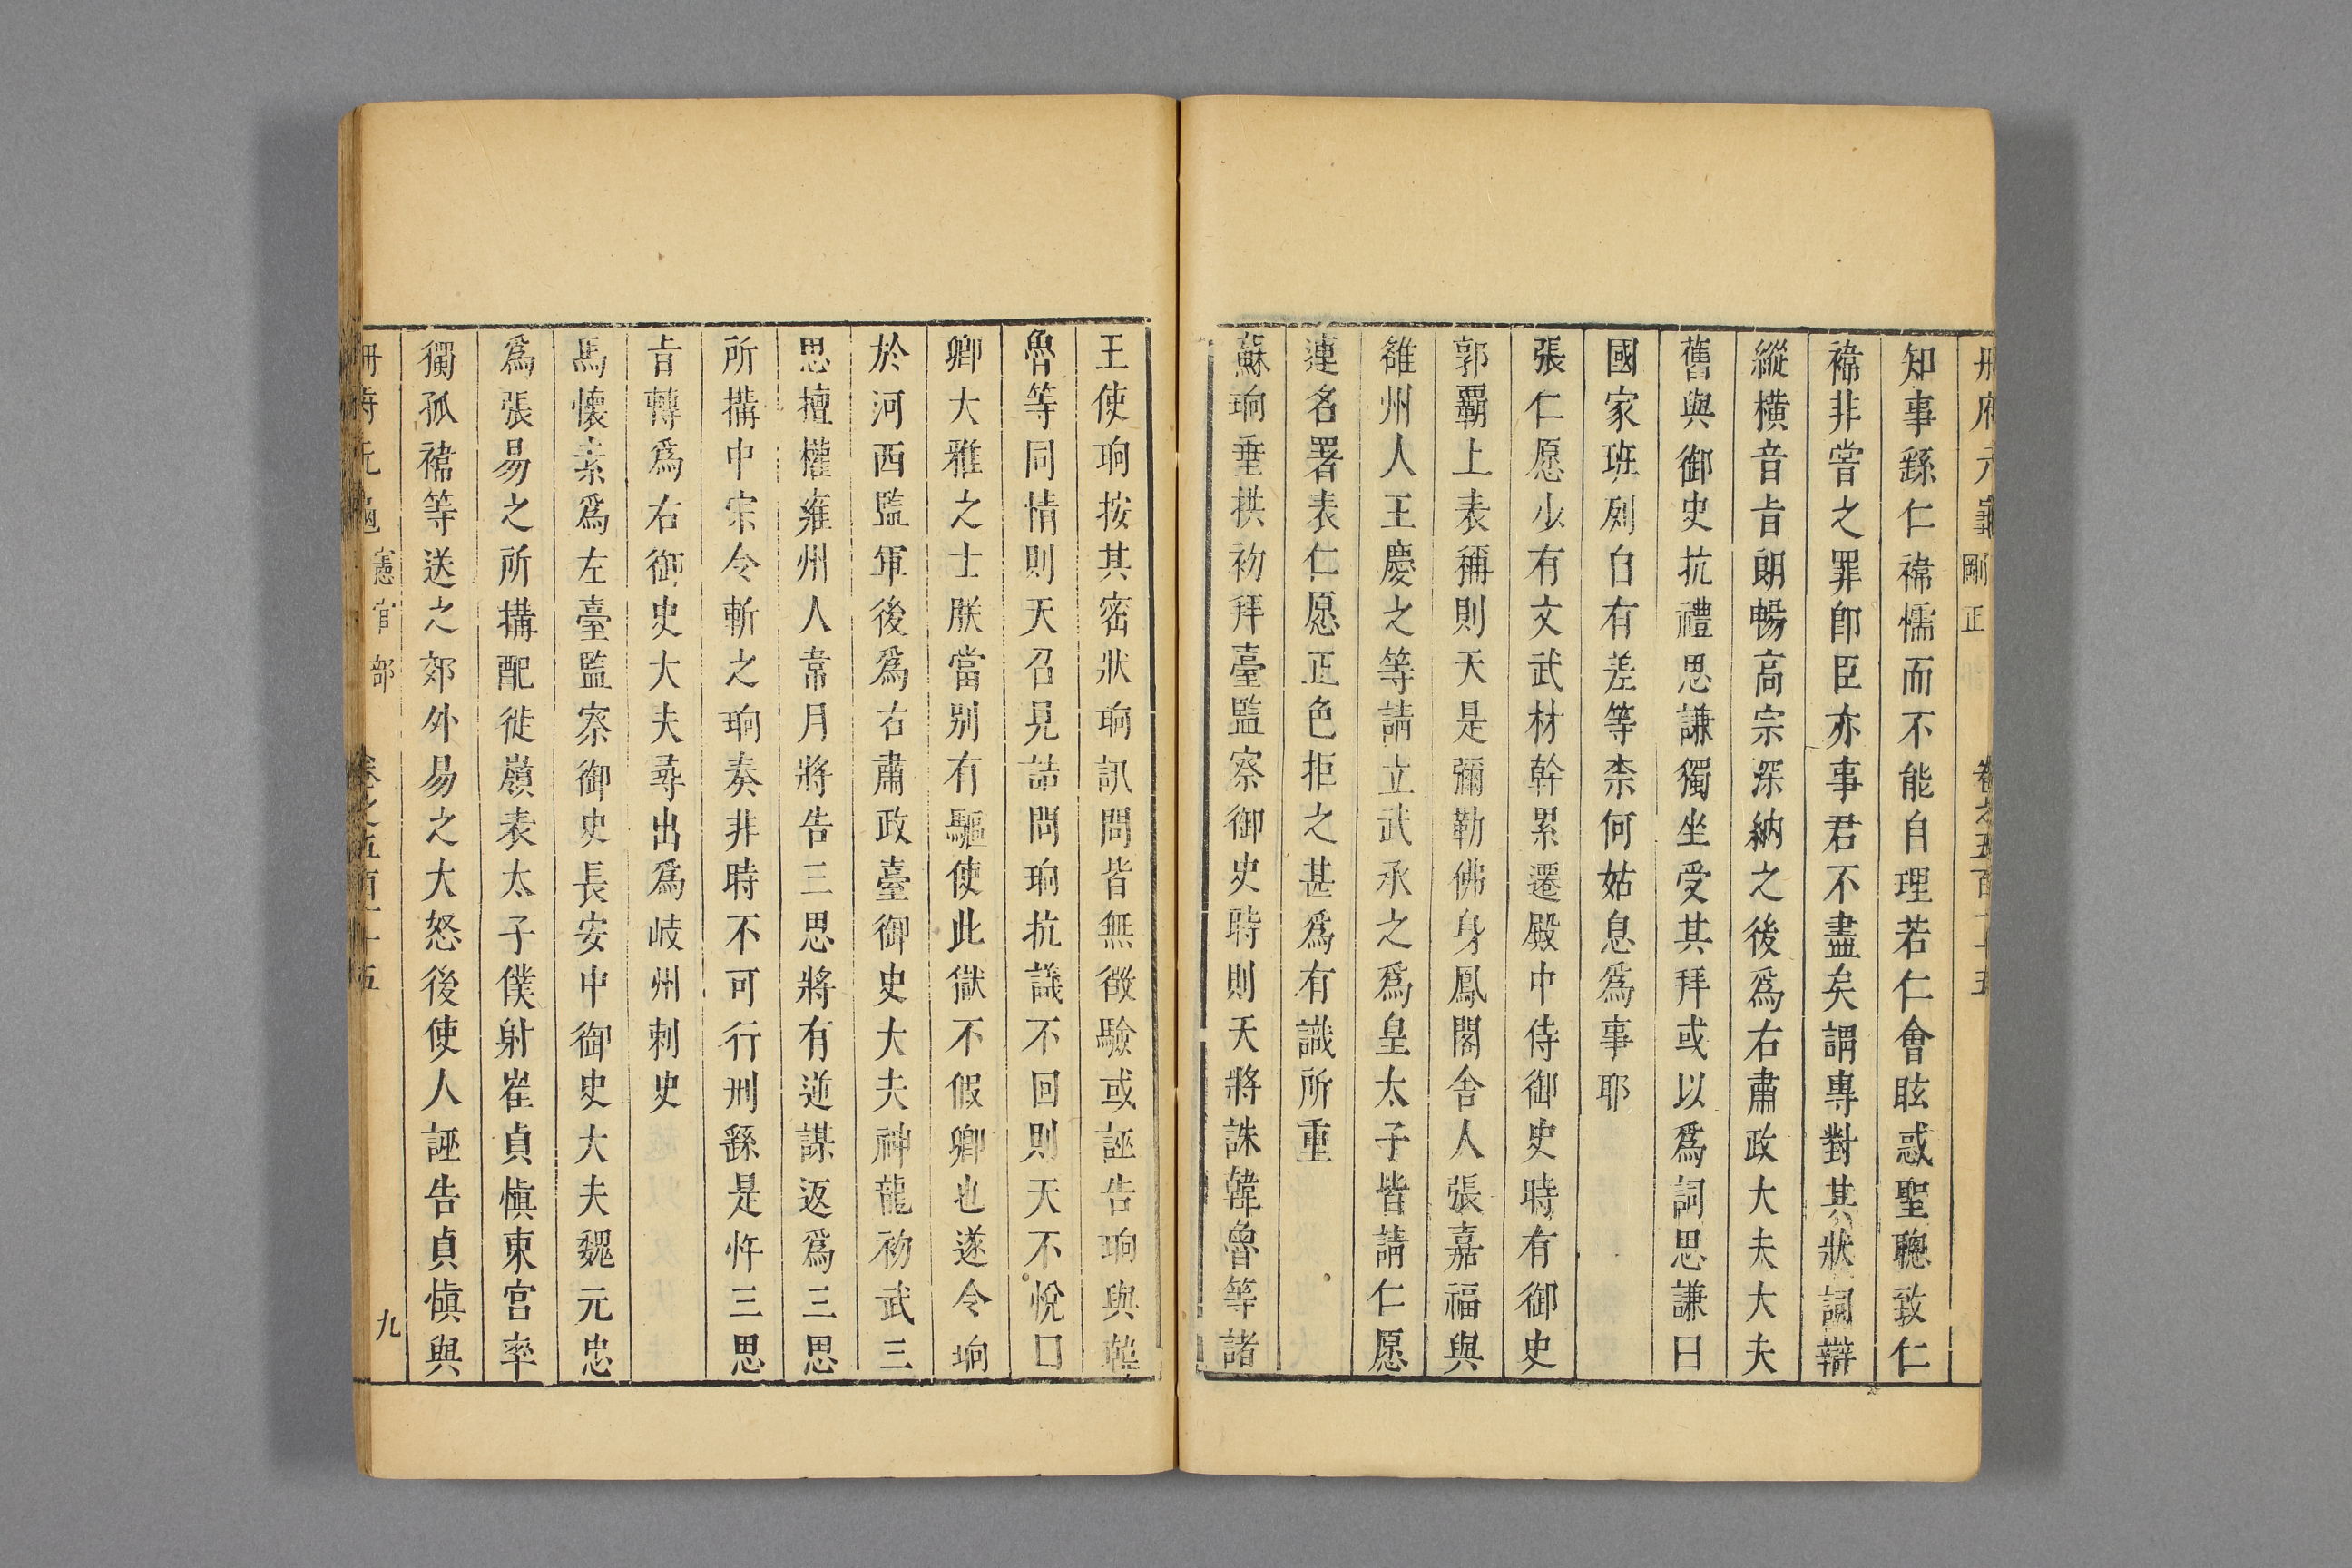 册府元龜 剛正 卷之五百十五
知事繇仁禕懦而不能自理若仁會眩惑聖聰致仁
禕非嘗之罪卽臣亦事君不盡矣謂專對其狀詞辯
縱橫音旨朗暢高宗深納之後爲右肅政大夫大夫
舊與御史抗禮思謙獨坐受其拜或以爲詞思謙曰
國家班列自有差等柰何姑息爲事耶
張仁愿少有文武材幹累遷殿中侍御史時有御史
郭霸上表稱則天是彌勒佛身鳳閣舍人張嘉福與
雒州人王慶之等請立武承之爲皇太子皆請仁愿
連名署表仁愿正色拒之甚爲有識所重
蘇珦垂拱初拜臺監察御史時則天將誅韓魯等諸
王使珦按其密狀珦訊問皆無徵驗或誣告珦與韓
魯等同情則天召見詰問珦抗議不回則天不悅曰
卿大雅之士朕當別有驅使此獄不假卿也遂令珦
於河西監軍後爲右肅政臺御史大夫神龍初武三
思擅權雍州人韋月將告三思將有逆謀返爲三思
所搆中宗令斬之珦奏非時不可行刑繇是忤三思
旨轉爲右御史大夫尋出爲岐州刺史
馬懷素爲左臺監察御史長安中御史大夫魏元忠
爲張易之所搆配徙嶺表太子僕射崔貞愼東宮率
獨孤禕等送之郊外易之大怒後使人誣告貞愼與
册府元龜 憲官部 卷之五百十五 九